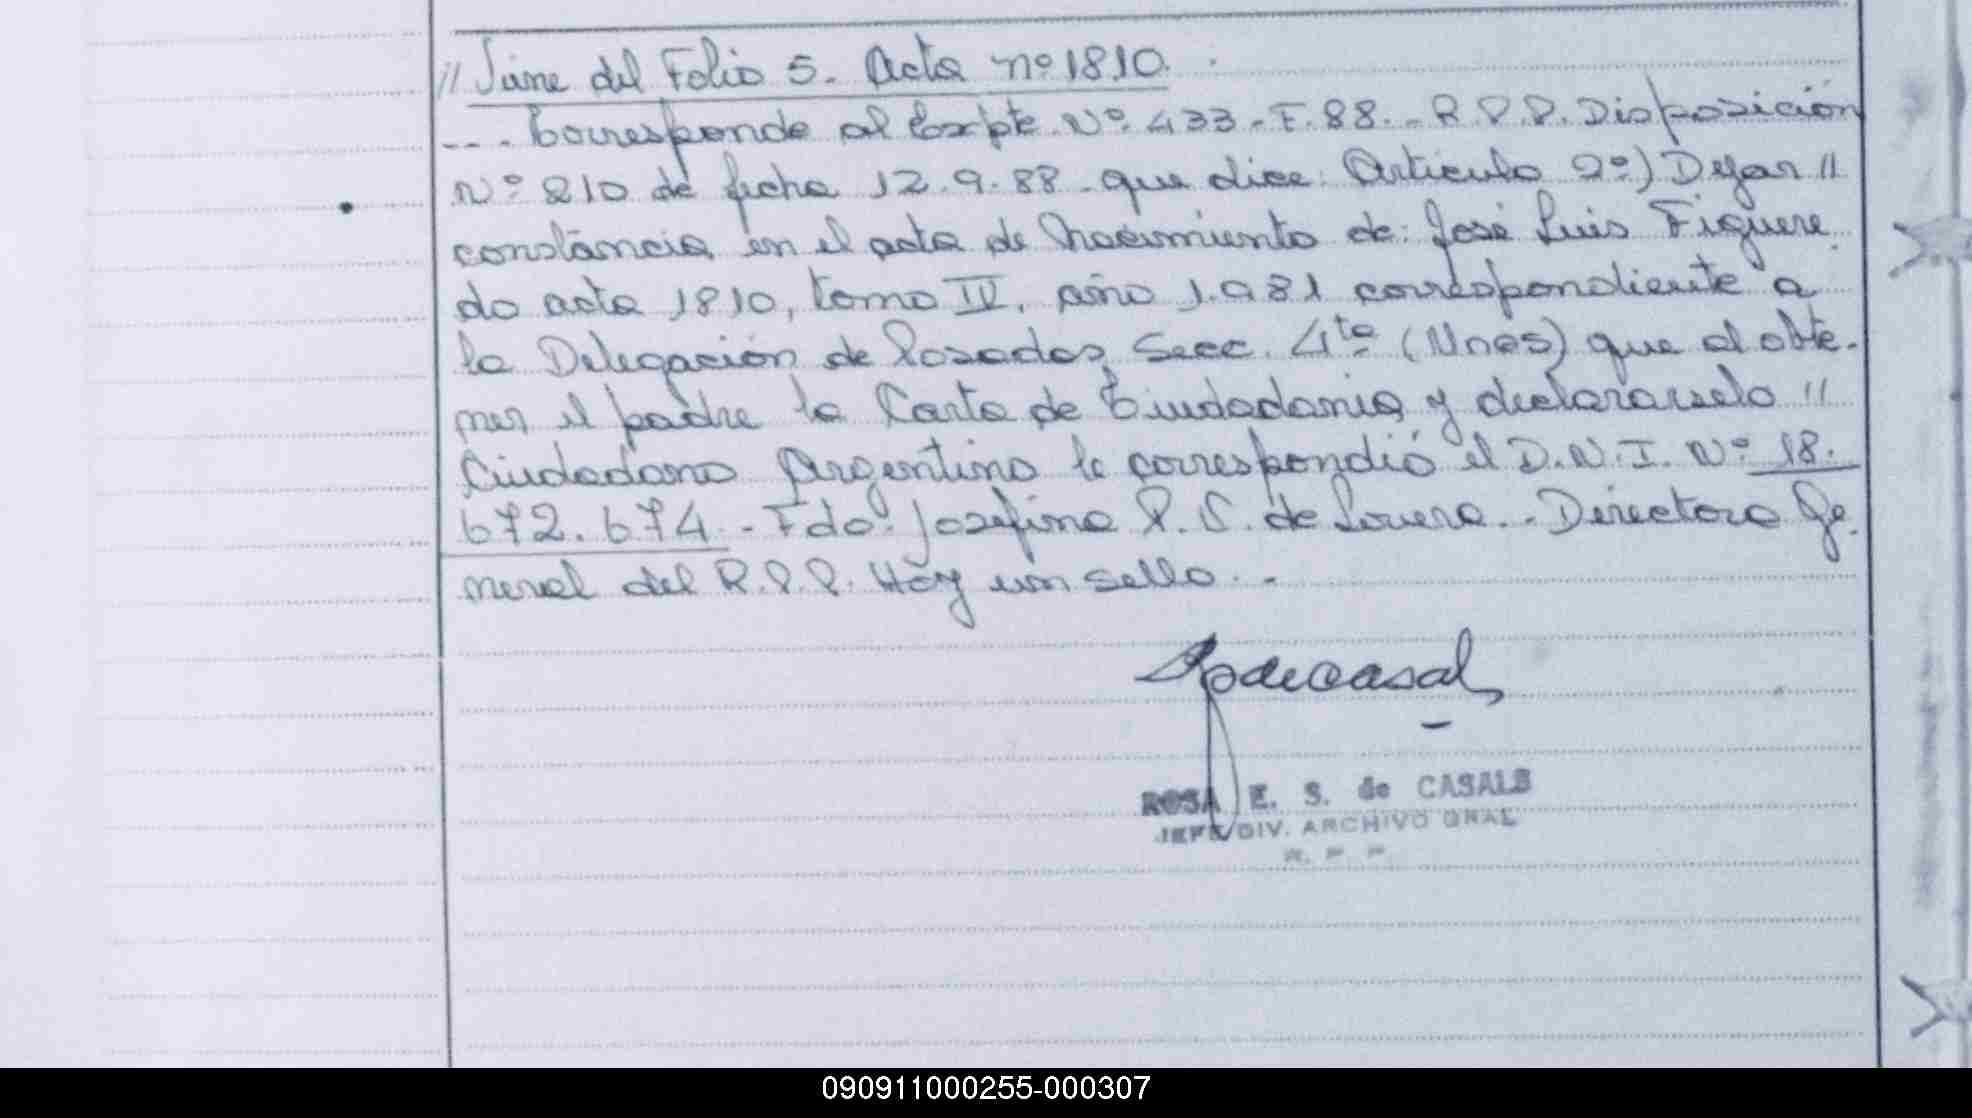 // Viene del Folio 5. Acta nº 1810.
--- Corresponde al Expte. Nº. 433-F.88.- R.P.P. Disposición
Nº 210 de fecha 12.9.88. que dice: Artículo 2º) Dejar //
constancia en el acta de Nacimiento de: José Luis Figuere
do acta 1810, tomo IV, año 1.981 correspondiente a
la Delegación de Posadas, Secc. 4ta (Mnes) que al obte-
ner el padre la Carta de Ciudadania y declararselo //
Ciudadano Argentino le correspondió el D.N.I. Nº 18.
672.674.- Fdo. Josefina P. S. de -. Directora Ge.
neral del R.P.P. Hay un sello.-
ROSA E. S. de CASALS
JEFE DIV. ARCHIVO GRAL
R. P. P.
090911000255-000307